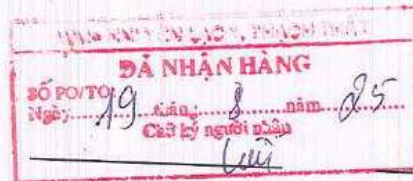 ĐÃ NHẬN HÀNG
SỐ PO/TO:
Ngày 19 tháng 8 năm 25
Chữ ký người nhận